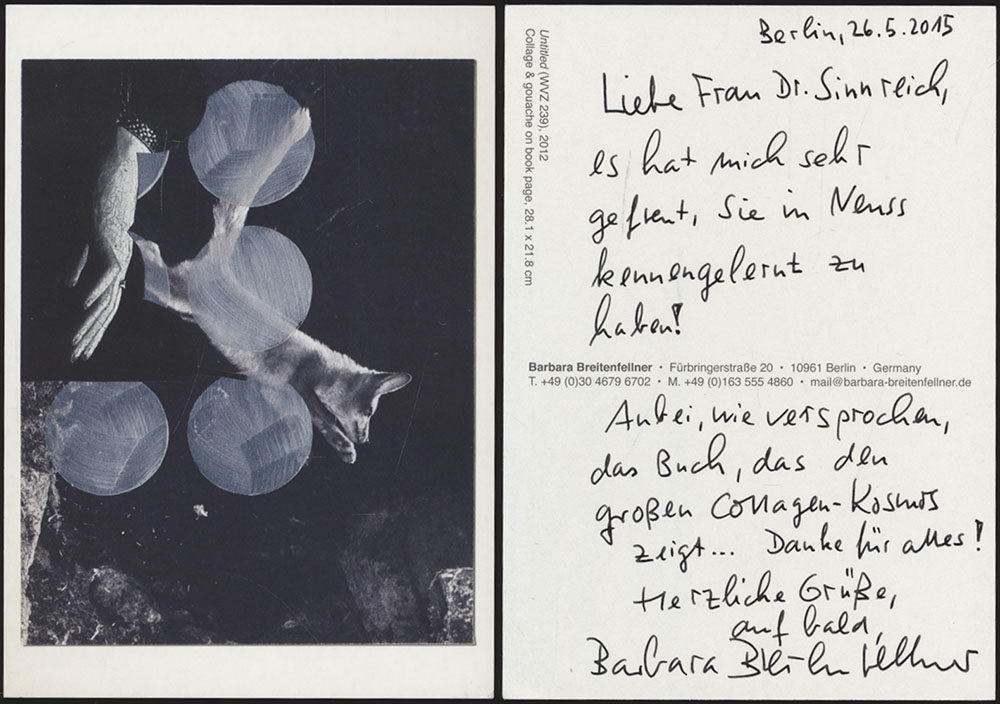 Untitled (WVZ 239), 2012
Collage & gouache on book page, 28.1 x 21.8 cm
Berlin, 26.5.2015
Liebe Frau Dr. Sinnreich,
es hat mich sehr
gefreut, Sie in Neuss
kennengelernt zu
haben!
Barbara Breitenfellner • Fürbringerstraße 20 • 10961 Berlin • Germany
T. +49 (0)30 4679 6702 • M. +49 (0)163 555 4860 • mail@barbara-breitenfellner.de
Anbei, wie versprochen,
das Buch, das den
großen Collagen-Kosmos
zeigt... Danke für alles!
Herzliche Grüße,
auf bald,
Barbara Breitenfellner